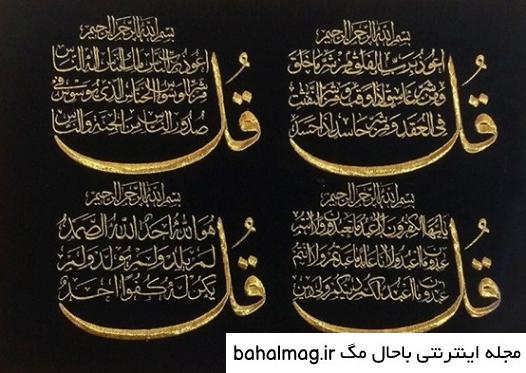 بسم الله الرحمن الرحيم
قل
اعوذ برب الفلق من شر ما خلق
ومن شر غاسق اذا وقب ومن شر النفثت
في العقد ومن شر حاسد اذا حسد
بسم الله الرحمن الرحيم
قل
اعوذ برب الناس ملك الناس اله الناس
من شر الوسواس الخناس الذي يوسوس في
صدور الناس من الجنة والناس
بسم الله الرحمن الرحيم
قل
يايها الكفرون لا اعبد ما تعبدون ولا انتم
عبدون ما اعبد ولا انا عابد ما عبدتم ولا انتم
عبدون ما اعبد لكم دينكم ولي دين
بسم الله الرحمن الرحيم
قل
هو الله احد الله الصمد
لم يلد ولم يولد ولم
يكن له كفوا احد
مجله اینترنتی باحال مگ bahalmag.ir